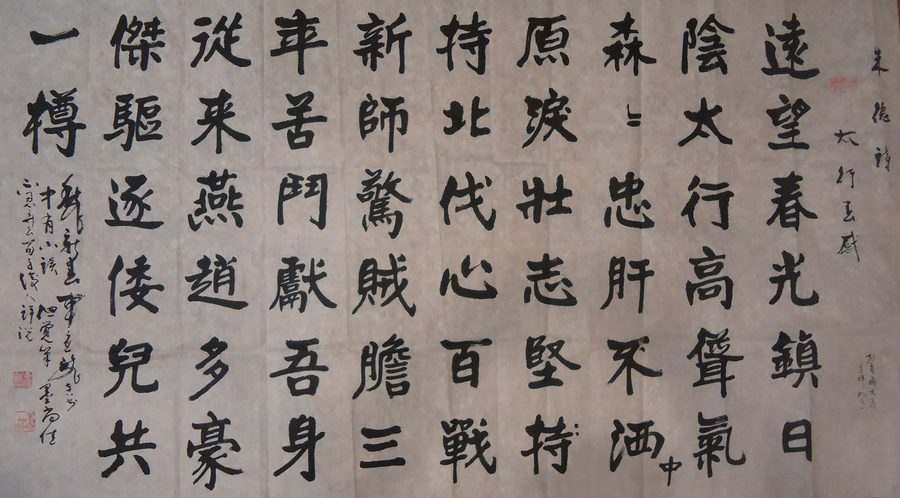 朱德詩
太行春感
遠望春光鎮日
陰太行高聳氣
森〻忠肝不洒中
原淚壯志堅持
持北伐心百戰
新師驚賊膽三
年苦鬥獻吾身
從来燕趙多豪
傑驅逐倭兒共
一樽